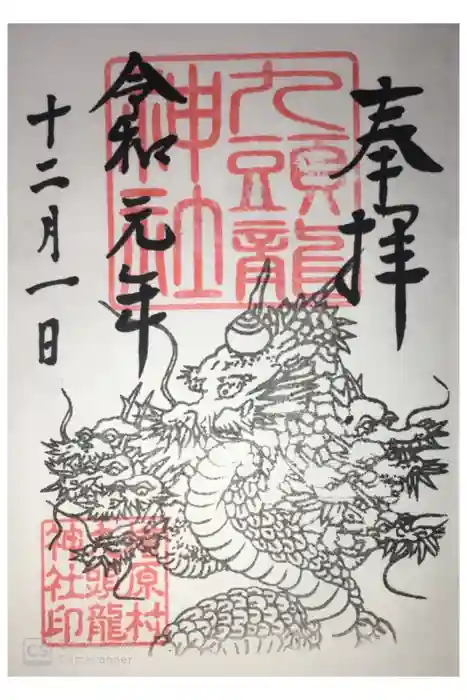 奉拝
九頭龍
神社
令和元年
十二月一日
原村
九頭龍
神社印
CS CamScanner